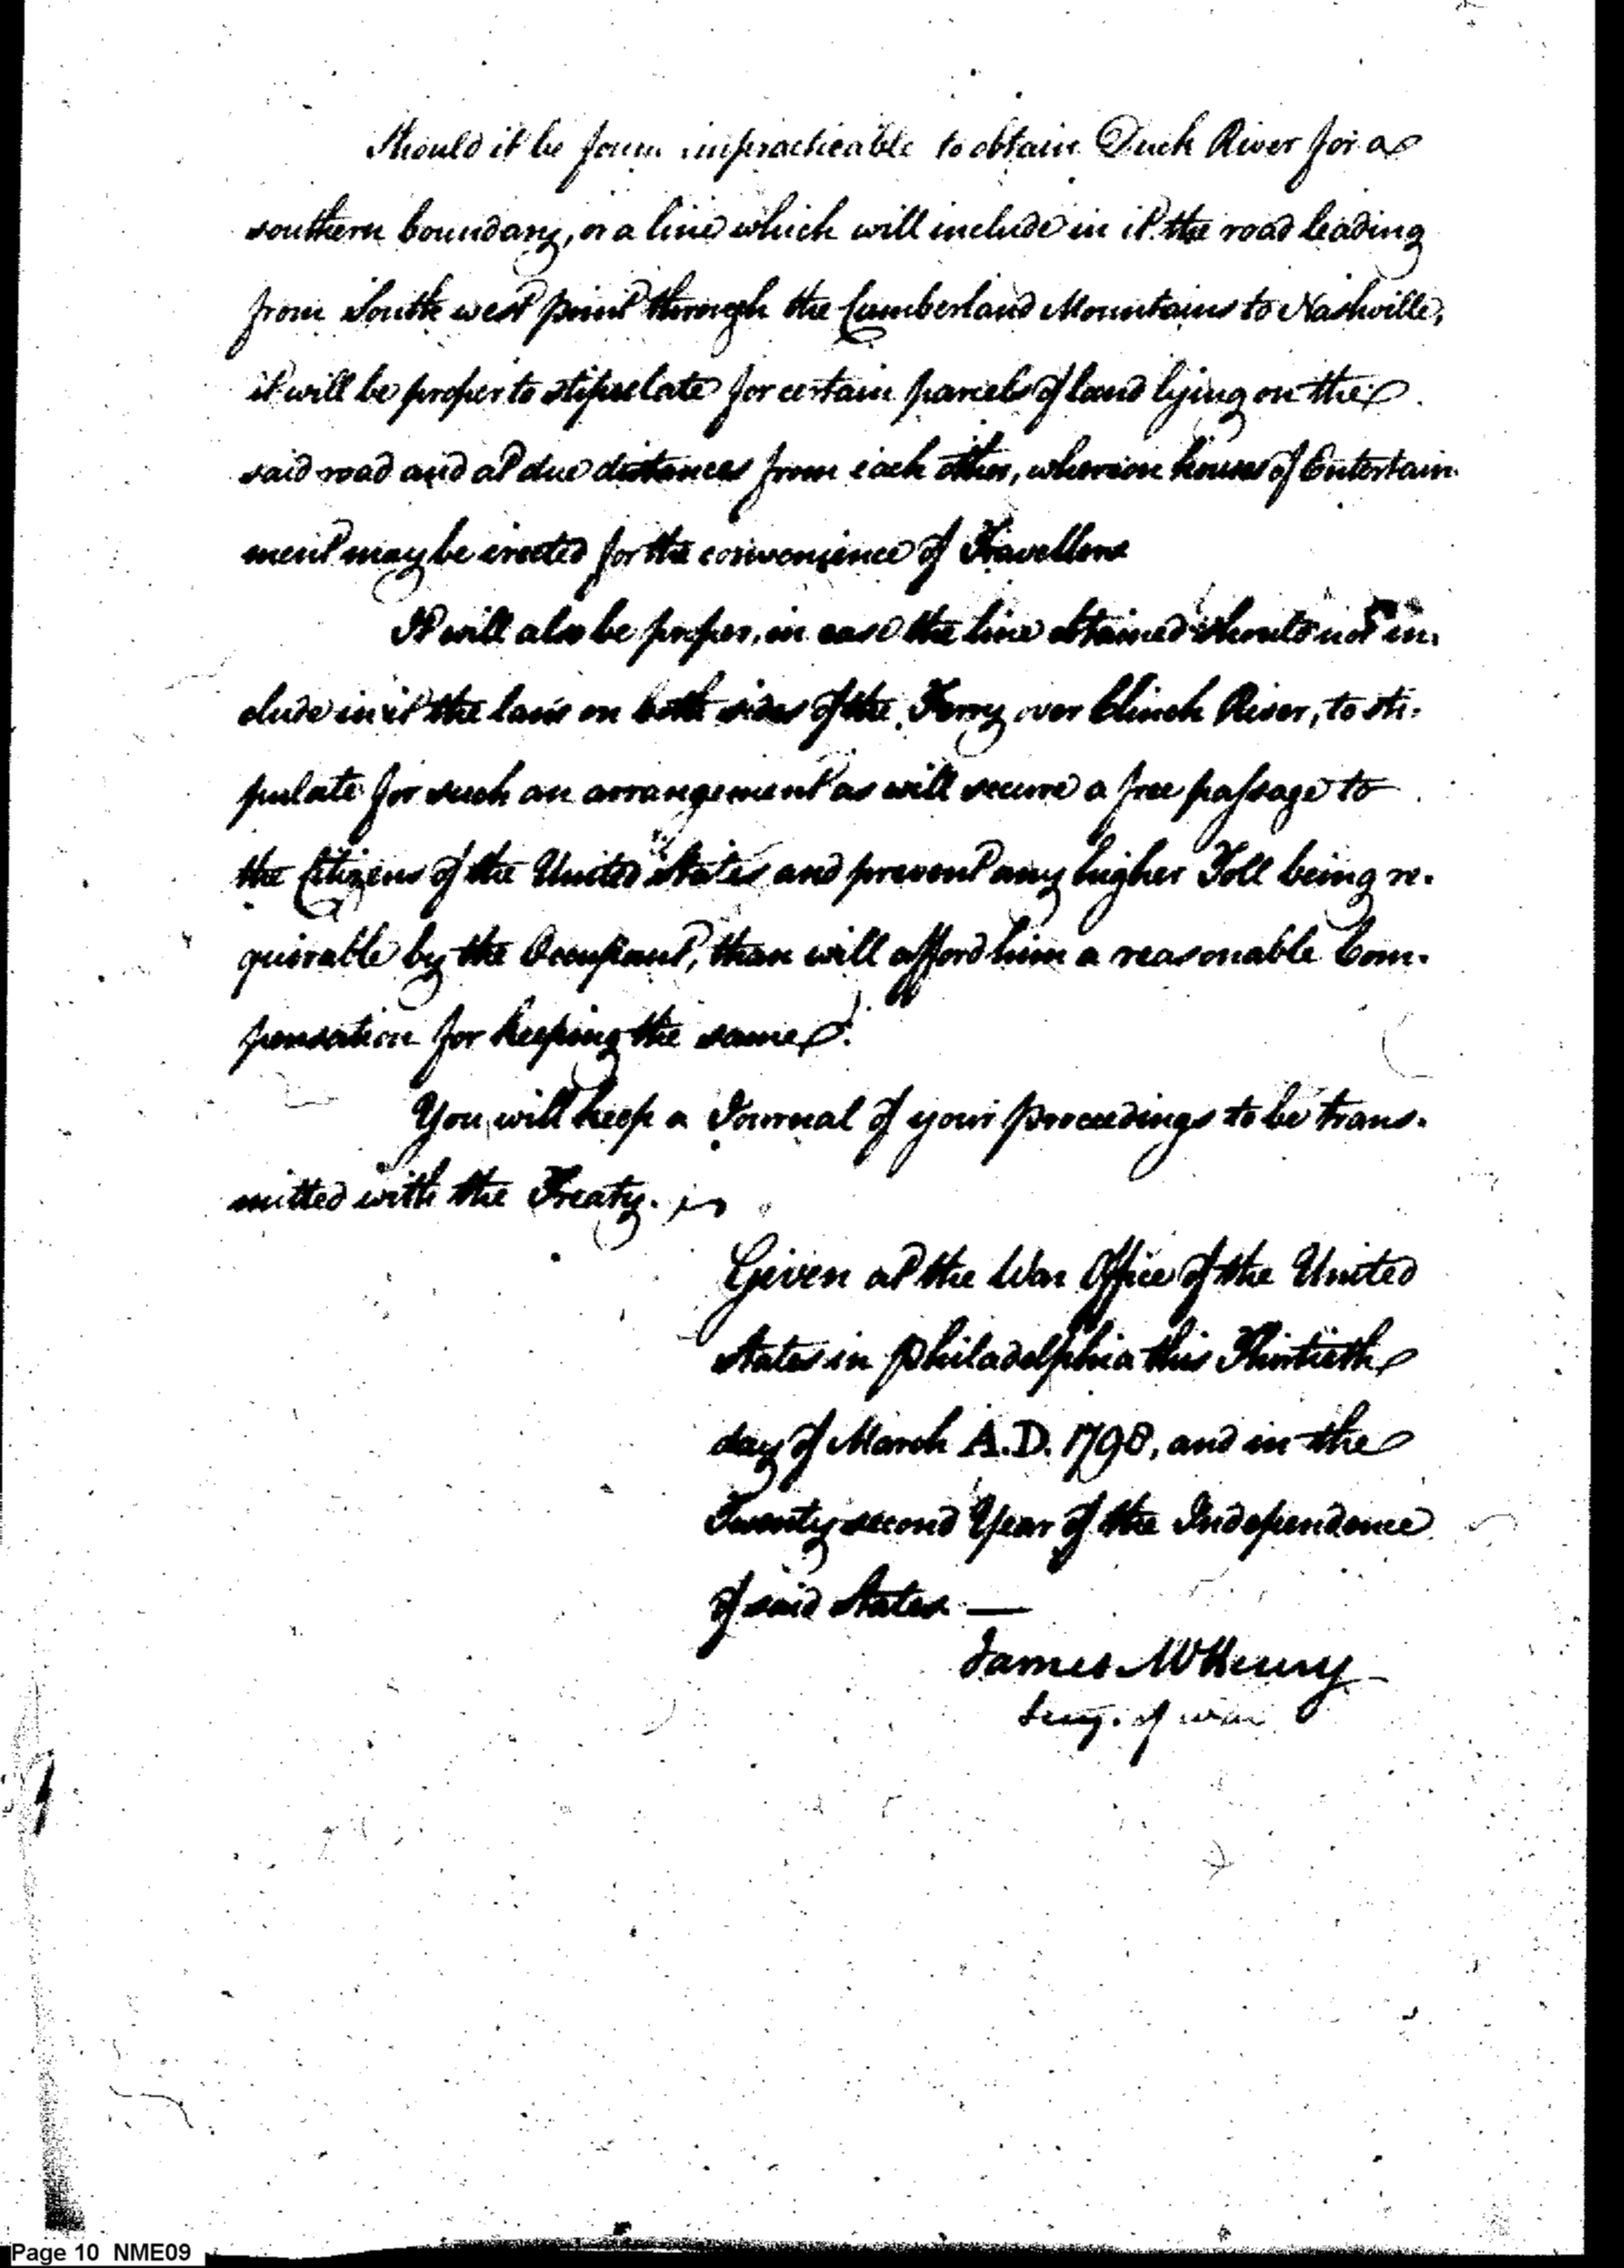 Should it be foun impracticable to obtain Duck River for a
southern boundary, or a line which will include in it the road leading
from South west point through the Cumberland Mountains to Nashville,
it will be proper to stipulate for certain parcels of land lying on the
said road and at due distances from each other, whereon houses of Entertain
ment may be erected for the convenience of Travellers
It will also be proper, in case the line obtained should not in.
clude in it the land on both sides of the Ferry over Clinch River, to sti.
pulate for such an arrangement as will secure a free passage to
the Citizens of the United States and prevent any higher Toll being re.
quirable by the Occupant, than will afford him a reasonable Com.
pensation for keeping the same.
You will keep a Journal of your proceedings to be trans.
mitted with the Treaty.
Given at the War Office of the United
States in Philadelphia this Thirtieth
day of March A.D. 1798, and in the
Twenty second Year of the Independence
of said States —
James McHenry
Secy. of war
Page 10 NME09